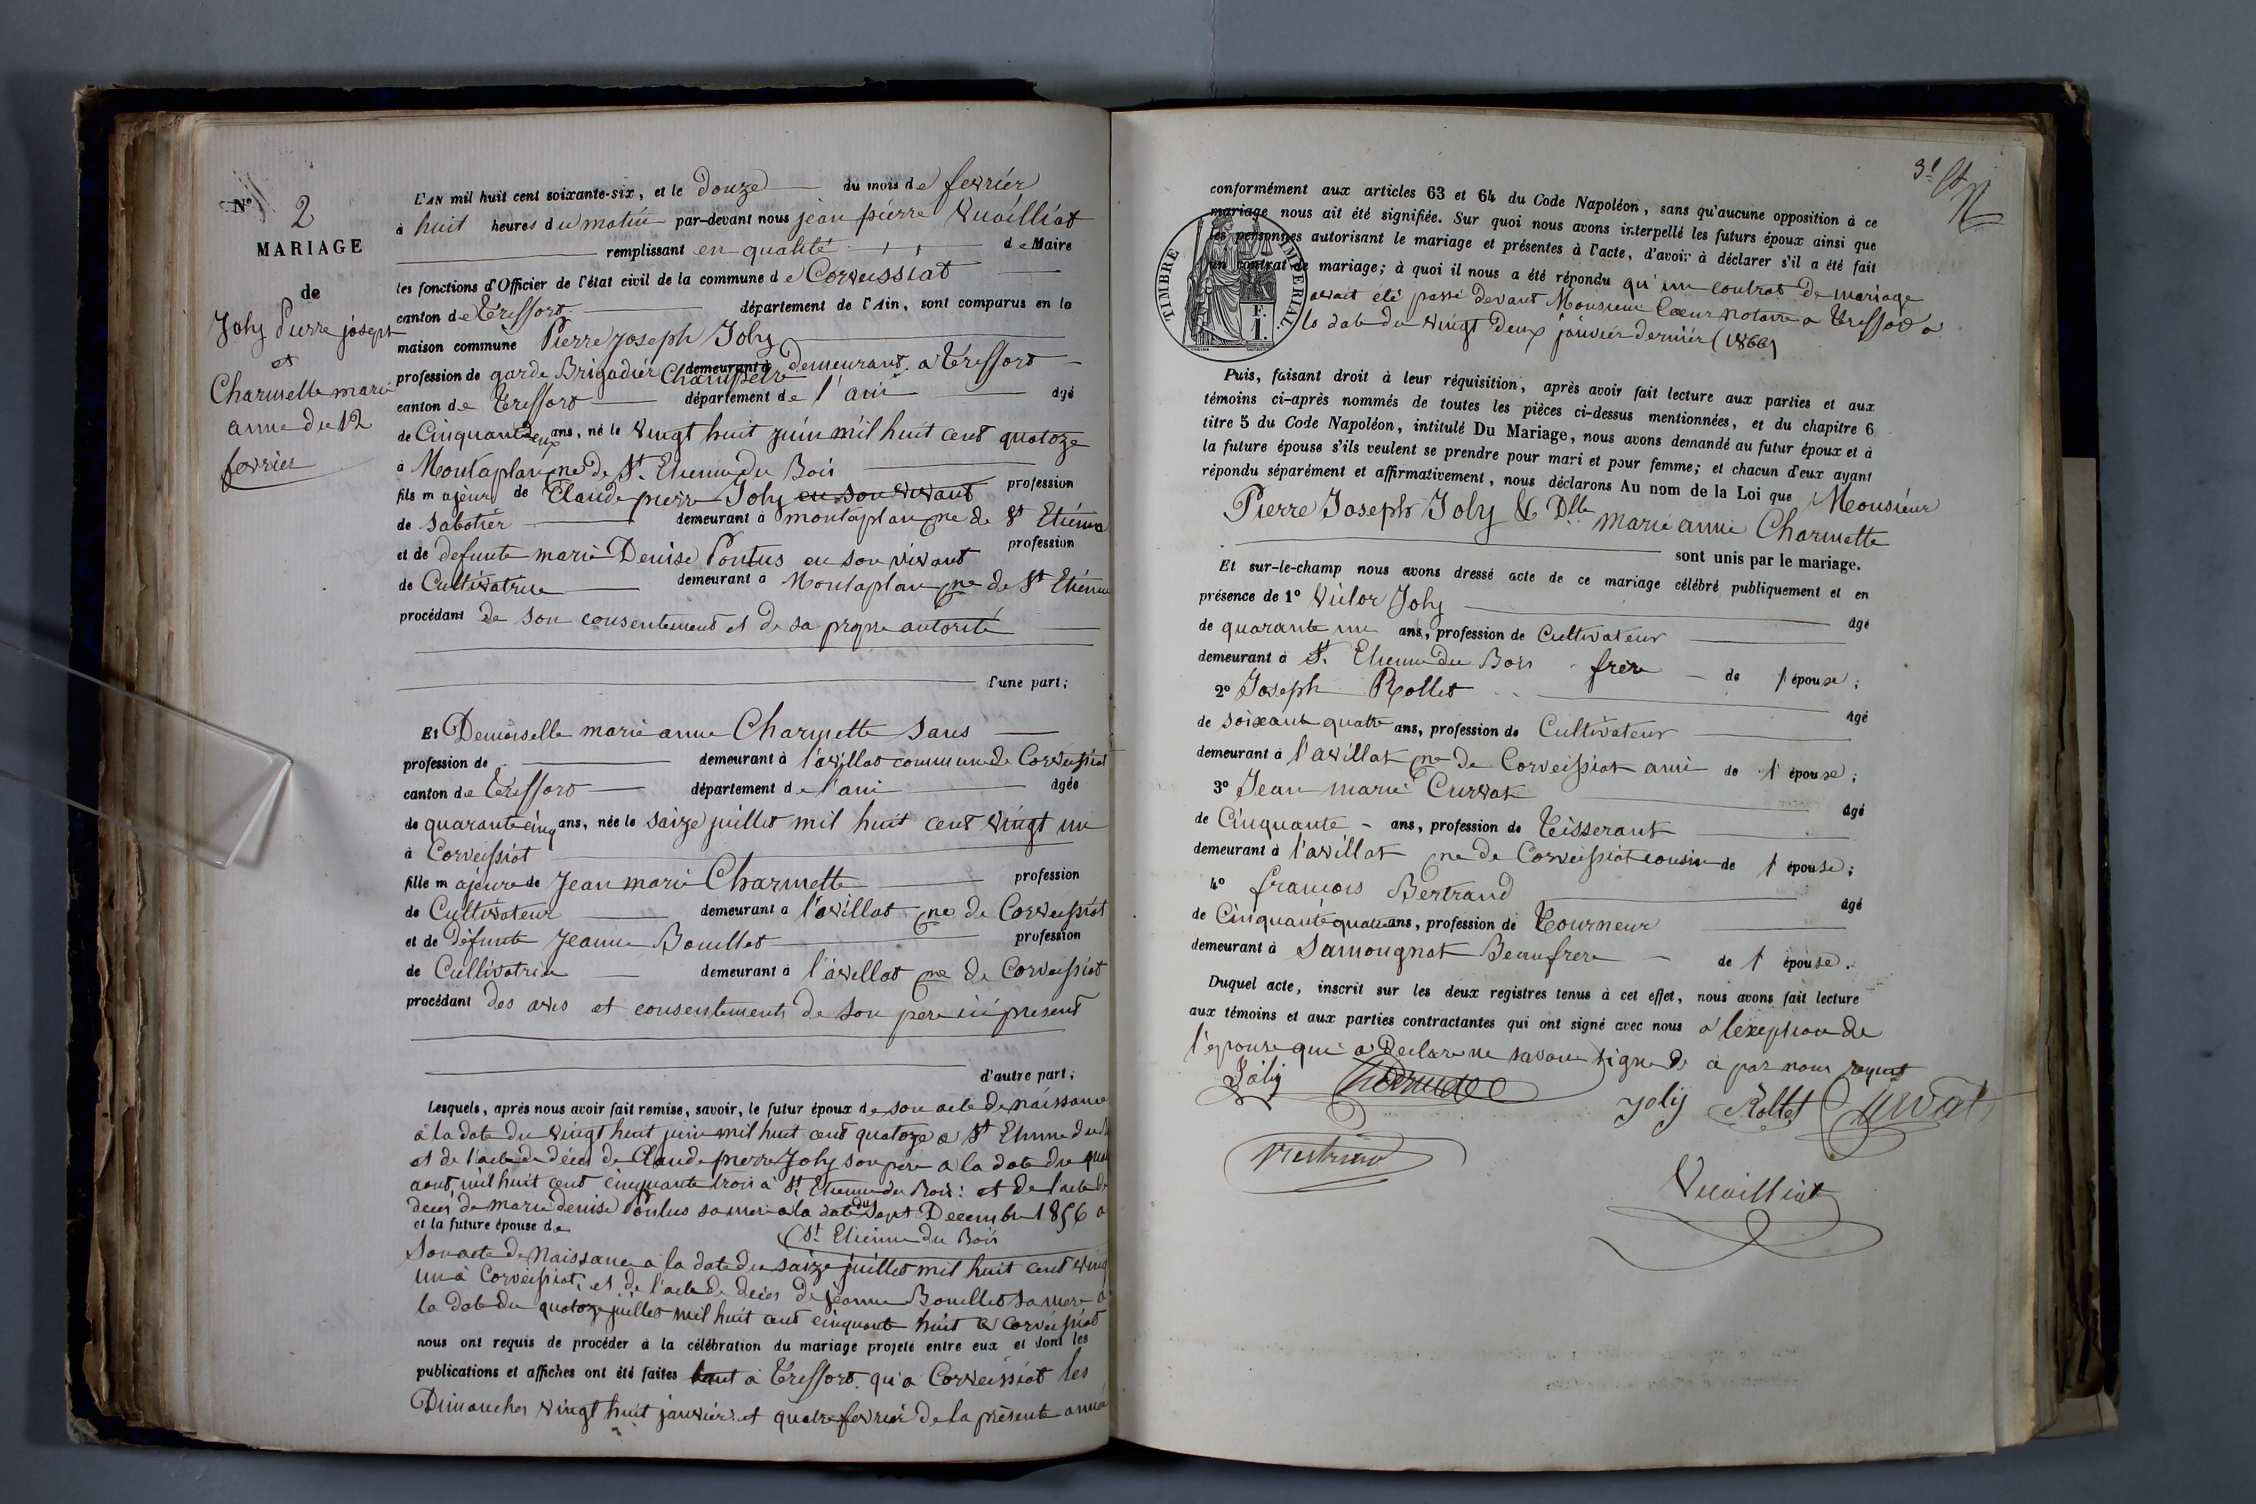 N° 2
MARIAGE
de
Joly Pierre joseph
et
Charmette marie
anne du 12
fevrier
L'AN mil huit cent soixante-six, et le douze du mois de fevrier
à huit heures du matin par-devant nous jean pierre Vuailliat
remplissant en qualité de Maire
les fonctions d'Officier de l'état civil de la commune de Corveissiat
canton de Treffort département de l'Ain, sont comparus en la
maison commune Pierre joseph Joly
profession de garde Brigadier Champetre demeurant à demeurant a Treffort
canton de Treffort département de l'ain âgé
de Cinquante deux ans, né le vingt huit juin mil huit cent quatoze
à Montaplan cne de St. Etienne du Bois
fils majeur de Claude pierre Joly en son vivant profession
de sabotier demeurant à montaplan cne de St Etienne
et de defunte marie Denise Pontus en son vivant profession
de Cultivatrice demeurant à Montaplan cne de St Etienne
procédant de son consentement et de sa propre autorité
d'une part;
Et Demoiselle marie anne Charmette sans
profession de demeurant à l'avillat commune de Corveissiat
canton de Treffort département de l'ain âgée
de quarante cinq ans, née le saize juillet mil huit cent vingt un
à Corveissiat
fille majeure de Jean marie Charmette profession
de Cultivateur demeurant à l'avillat cne de Corveissiat
et de defunte Jeanne Bouillet profession
de Cultivatrice demeurant à l'avillat cne de Corveissiat
procédant des avis et consentements de son père ici présent
d'autre part;
Lesquels, après nous avoir fait remise, savoir, le futur époux de son acte de naissance
à la date du vingt huit juin mil huit cent quatoze a St Etienne du
et de l'acte de décès de Claude pierre Joly son père a la date du
aout mil huit cent cinquante trois à St. Etienne du Bois: et de l'acte de
deces de marie denise Pontus sa mere a la date du sept Decembre 1856 a
St. Etienne du Bois
et la future épouse de
son acte de Naissance a la date du saize juillet mil huit cent vingt
un à Corveissiat, et de l'acte de deces de jeanne Bouillet sa mere a
la date du quatoze juillet mil huit cent cinquante huit a Corveissiat
nous ont requis de procéder à la célébration du mariage projeté entre eux et dont les
publications et affiches ont été faites tant à Treffort qu'a Corveissiat les
Dimanches vingt huit janvier et quatre fevrier de la présente année
conformément aux articles 63 et 64 du Code Napoléon, sans qu'aucune opposition à ce
mariage nous ait été signifiée. Sur quoi nous avons interpellé les futurs époux ainsi que
les personnes autorisant le mariage et présentes à l'acte, d'avoir à déclarer s'il a été fait
un contrat de mariage; à quoi il nous a été répondu qu'un contrat de mariage
avait été passé devant Monsieur Coeur notaire a Treffort a
la date du vingt deux janvier dernier (1866)
TIMBRE IMPERIAL
F.
1.
Puis, faisant droit à leur réquisition, après avoir fait lecture aux parties et aux
témoins ci-après nommés de toutes les pièces ci-dessus mentionnées, et du chapitre 6
titre 5 du Code Napoléon, intitulé Du Mariage, nous avons demandé au futur époux et à
la future épouse s'ils veulent se prendre pour mari et pour femme; et chacun d'eux ayant
répondu séparément et affirmativement, nous déclarons Au nom de la Loi que Monsieur
Pierre Joseph Joly & Dlle marie anne Charmette
sont unis par le mariage.
Et sur-le-champ nous avons dressé acte de ce mariage célébré publiquement et en
présence de 1° Victor Joly âgé
de quarante un ans, profession de Cultivateur
demeurant à St. Etienne du Bois frère de l'épouse;
2° Joseph Rollet âgé
de soixante quatre ans, profession de Cultivateur
demeurant à l'avillat cne de Corveissiat ami de l'épouse;
3° Jean marie Curvat âgé
de Cinquante ans, profession de Tisserant
demeurant à l'avillat cne de Corveissiat cousin de l'épouse;
4° françois Bertrand âgé
de Cinquante quatre ans, profession de Tourneur
demeurant à Samougnat Beaufrere de l'épouse.
Duquel acte, inscrit sur les deux registres tenus à cet effet, nous avons fait lecture
aux témoins et aux parties contractantes qui ont signé avec nous à l'exeption de
l'épouse qui a Declare ne savoir signe de a par nous requit
Joly Charmette Joly Rollet Curvat
Bertrand
Vuailliat